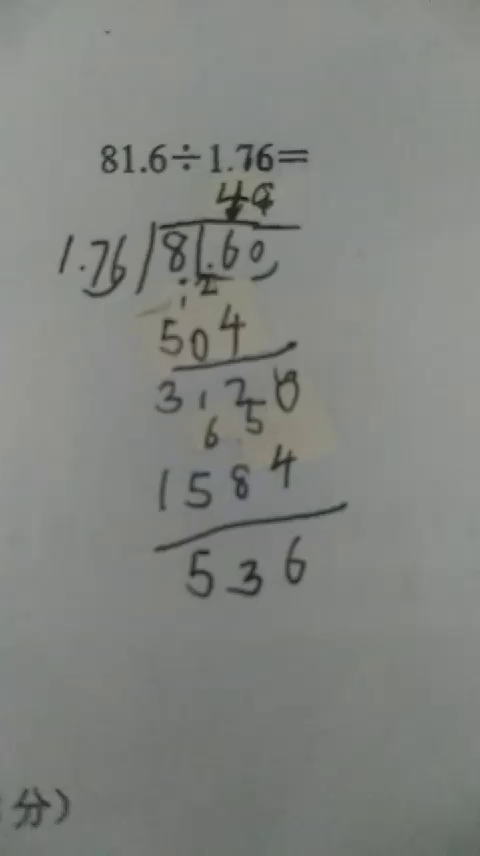 81.6÷1.76=
49
1.76 81.60
12
504
3120
65
1584
536
分)